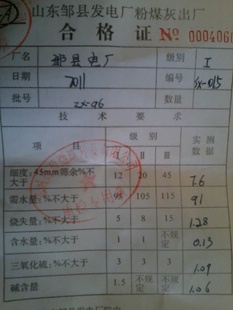 山东邹县发电厂粉煤灰出厂
合格证 No 000406
厂名 邹县电厂 级别 I
日期 2011 编号
批号 数量
技术要求
级别 实测数据
I II III
细度:45mm筛余%不大于 12 20 45 7.6
需水量:%不大于 95 105 115 91
烧失量:%不大于 5 8 15 1.28
含水量:%不大于 1 1 不规定 0.13
三氧化硫:%不大于 3 3 3 1.09
碱含量 1.5 不规定 不规定 1.06